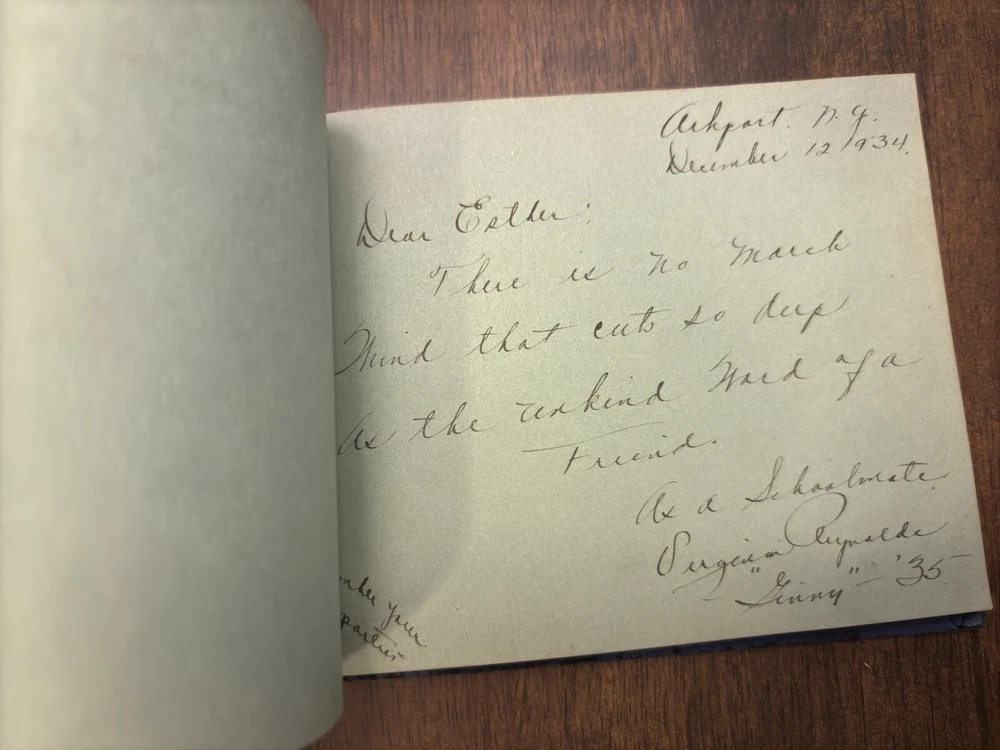 Arkport. N.Y.
December 12 1934.
Dear Esther:
There is no March
Wind that cuts so deep
As the unkind Word of a
Friend.
As a Schoolmate
Virginia Reynolds
"Ginny" - '35
your
parties